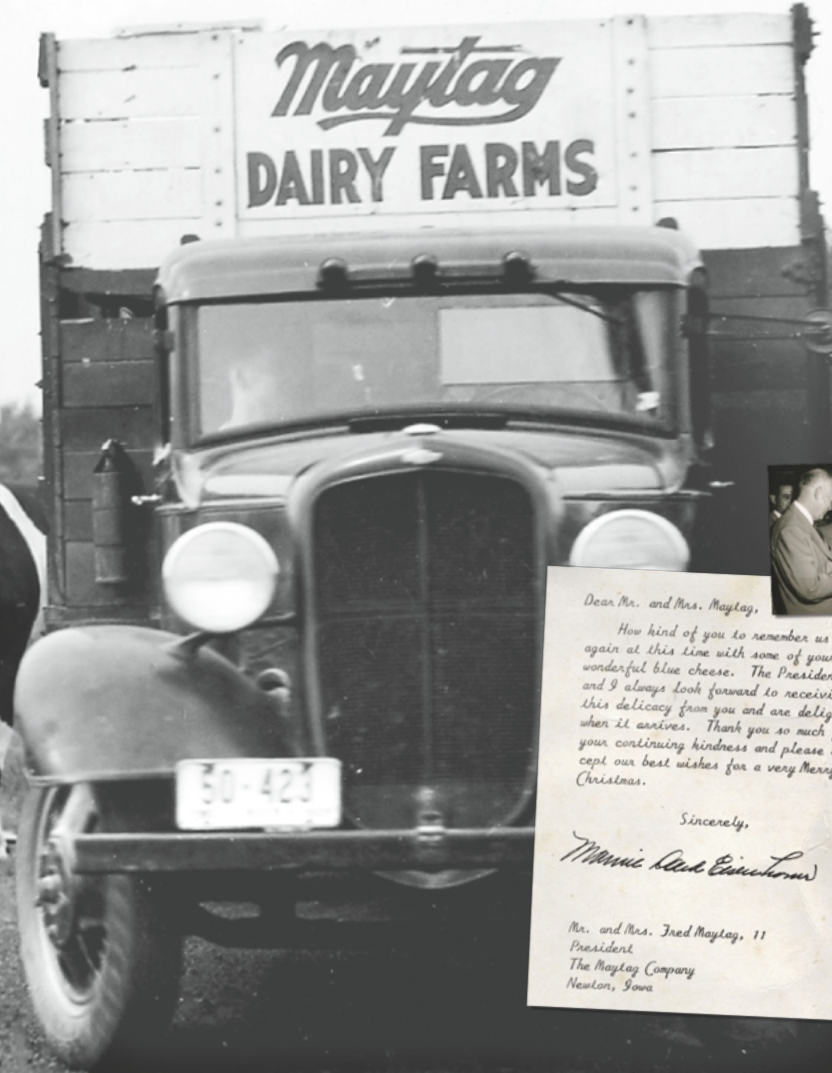 Maytag
DAIRY FARMS
50-423
Dear Mr. and Mrs. Maytag,
How kind of you to remember us
again at this time with some of your
wonderful blue cheese. The Presiden
and I always look forward to receivi
this delicacy from you and are delig
when it arrives. Thank you so much
your continuing kindness and please
cept our best wishes for a very Merry
Christmas.
Sincerely,
Mamie Doud Eisenhower
Mr. and Mrs. Fred Maytag, II
President
The Maytag Company
Newton, Iowa